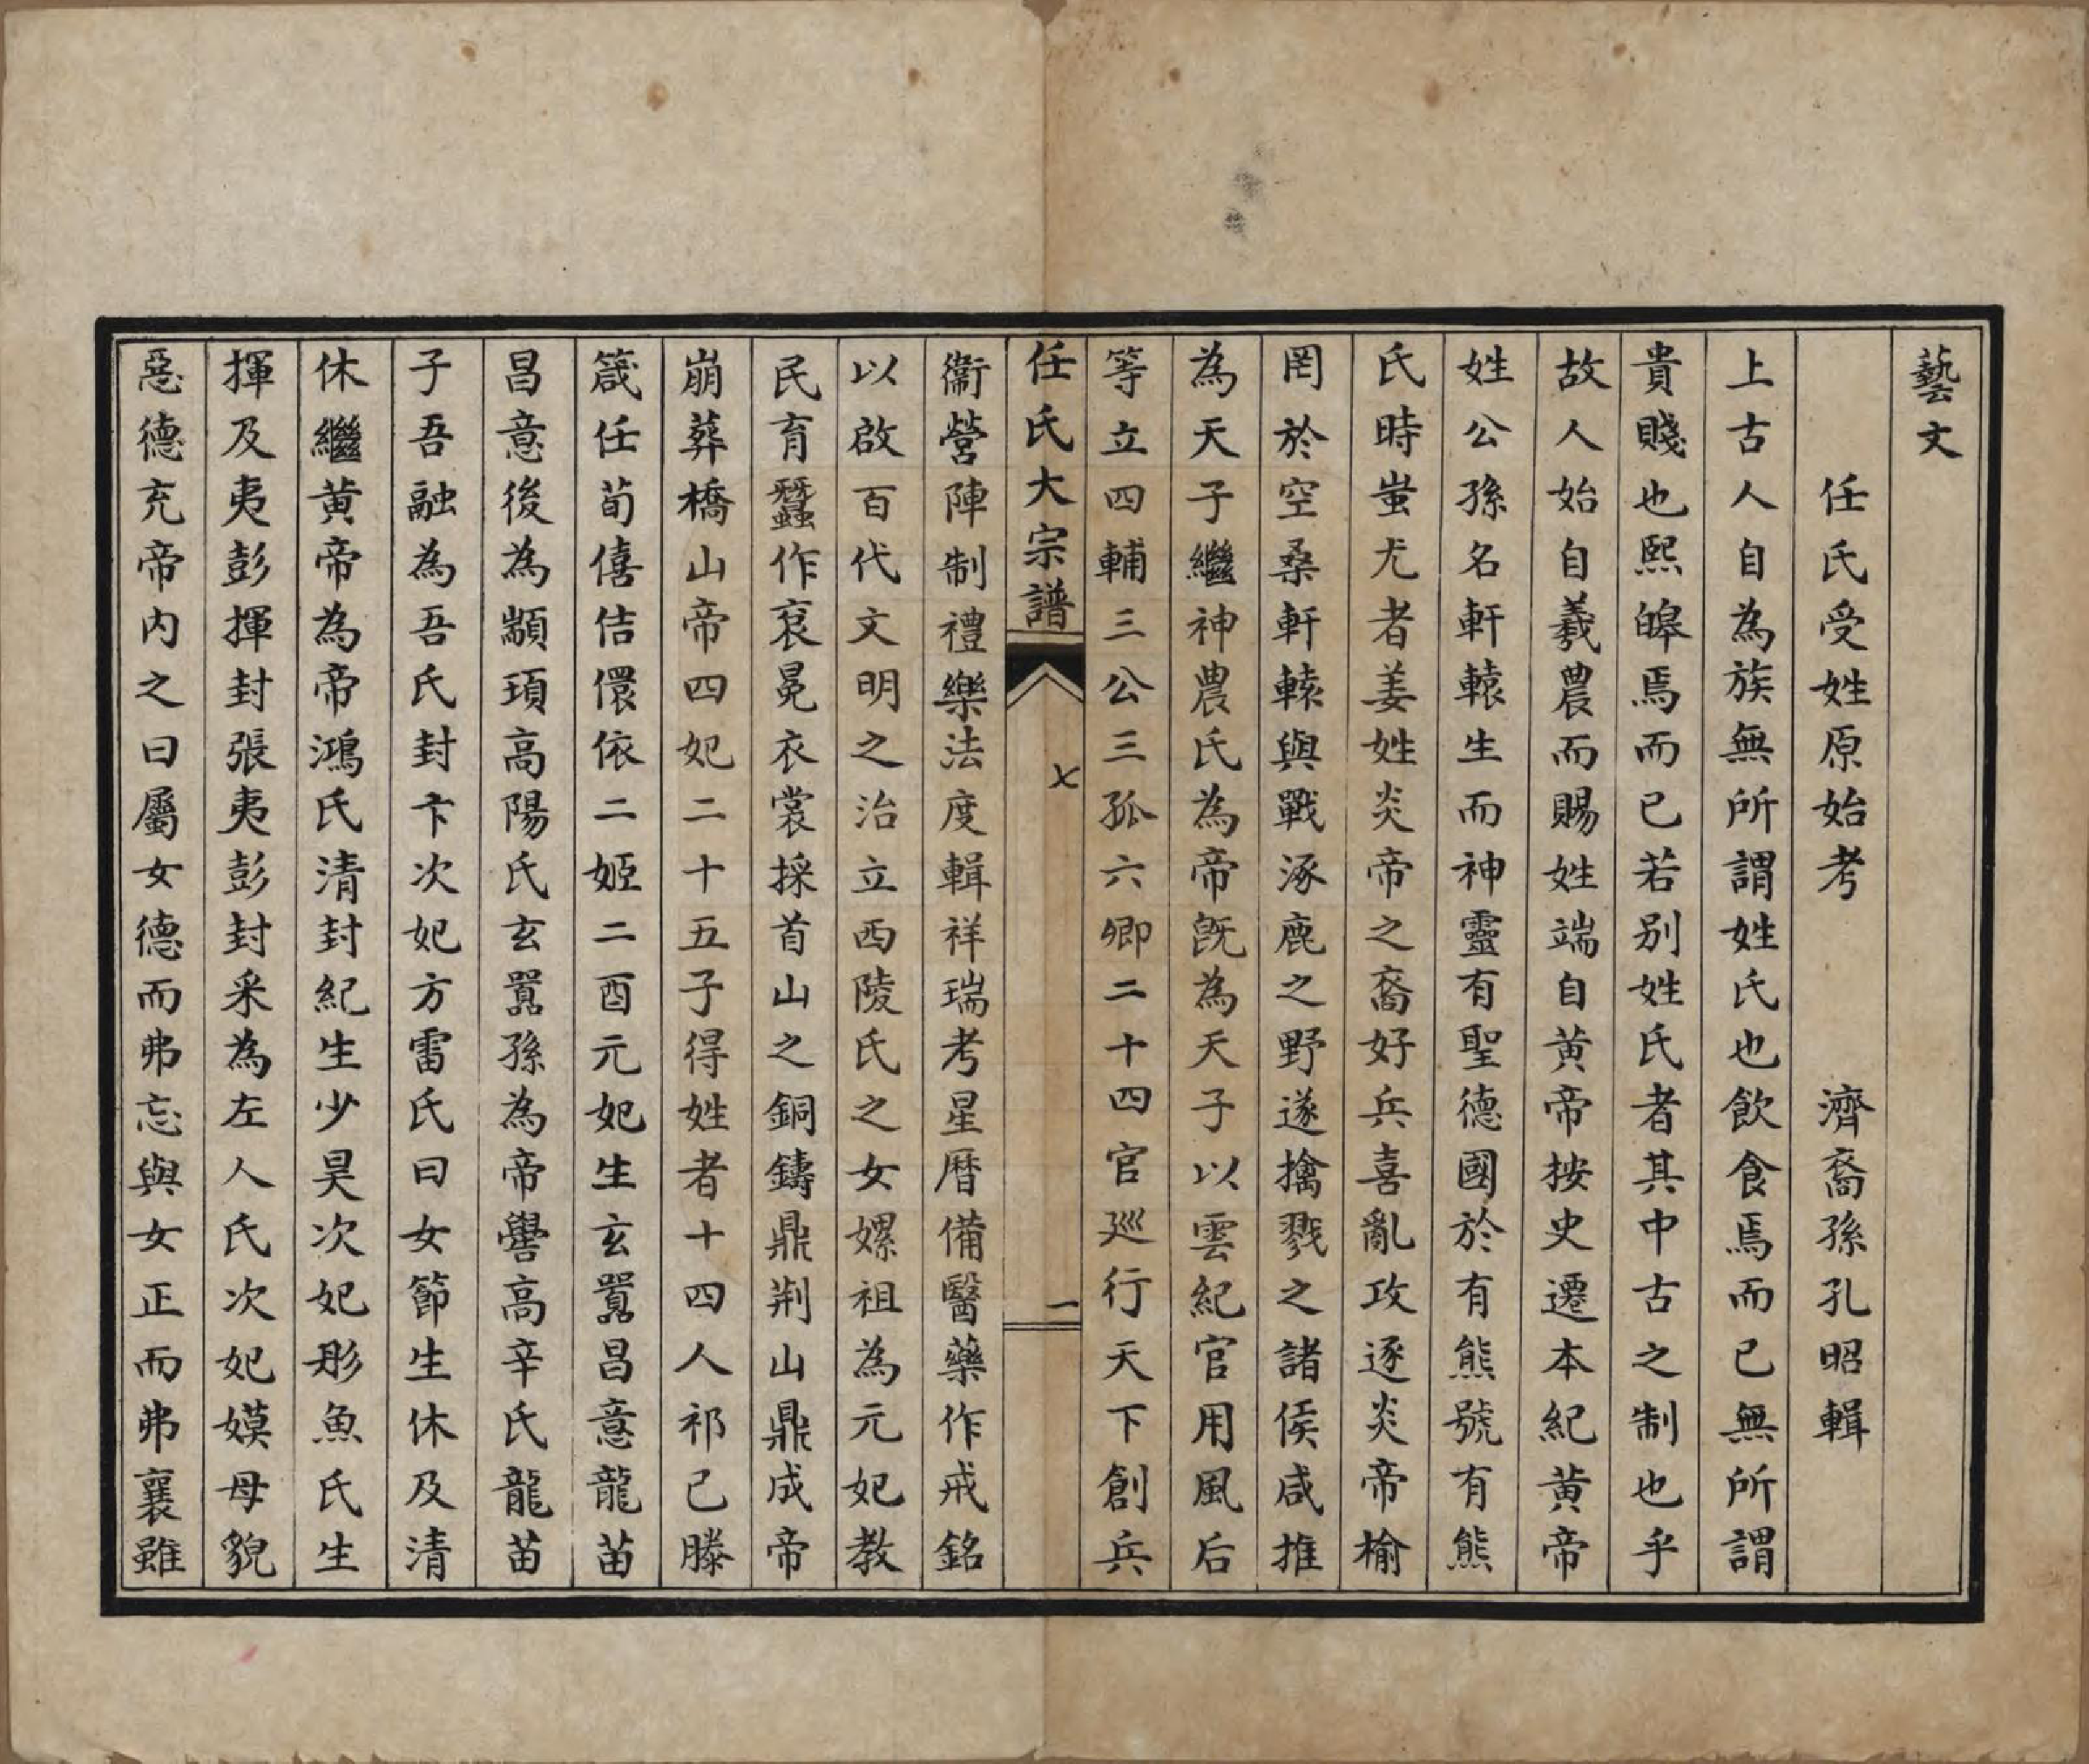 藝文
任氏受姓原始考　濟裔孫孔昭輯
上古人自為族無所謂姓氏也飲食焉而已無所謂
貴賤也熙皞焉而已若別姓氏者其中古之制也乎
故人始自羲農而賜姓端自黃帝按史遷本紀黃帝
姓公孫名軒轅生而神靈有聖德國於有熊號有熊
氏時蚩尤者姜姓炎帝之裔好兵喜亂攻逐炎帝榆
罔於空桑軒轅與戰涿鹿之野遂擒戮之諸侯咸推
為天子繼神農氏為帝既為天子以雲紀官用風后
等立四輔三公三孤六卿二十四官巡行天下創兵
任氏大宗譜
七
一
衞營陣制禮樂法度輯祥瑞考星曆備醫藥作戒銘
以啟百代文明之治立西陵氏之女嫘祖為元妃教
民育蠶作袞冕衣裳採首山之銅鑄鼎荆山鼎成帝
崩葬橋山帝四妃二十五子得姓者十四人祁己滕
箴任荀僖佶儇依二姬二酉元妃生玄囂昌意龍苗
昌意後為顓頊高陽氏玄囂孫為帝嚳高辛氏龍苗
子吾融為吾氏封卞次妃方雷氏曰女節生休及清
休繼黃帝為帝鴻氏清封紀生少昊次妃彤魚氏生
揮及夷彭揮封張夷彭封采為左人氏次妃嫫母貌
惡德充帝内之曰屬女德而弗忘與女正而弗襄雖